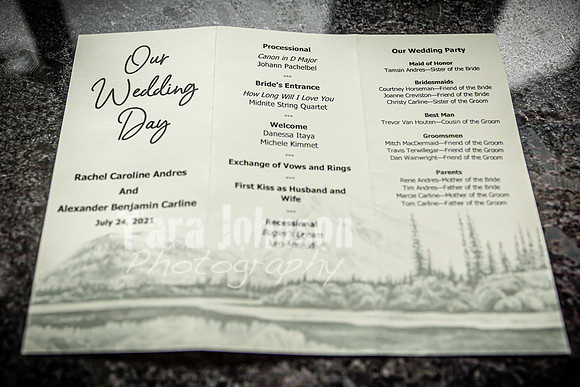 Our
Wedding
Day
Rachel Caroline Andres
And
Alexander Benjamin Carline
July 24, 2021
Processional
Canon in D Major
Johann Pachelbel
***
Bride's Entrance
How Long Will I Love You
Midnite String Quartet
***
Welcome
Danessa Itaya
Michele Kimmet
***
Exchange of Vows and Rings
***
First Kiss as Husband and
Wife
***
Recessional
Our Wedding Party
Maid of Honor
Tamsin Andres—Sister of the Bride
Bridesmaids
Courtney Horseman—Friend of the Bride
Joanne Creviston—Friend of the Bride
Christy Carline—Sister of the Groom
Best Man
Trevor Van Houten—Cousin of the Groom
Groomsmen
Mitch MacDermaid—Friend of the Groom
Travis Terwillegar—Friend of the Groom
Dan Wainwright—Friend of the Groom
Parents
Rene Andres—Mother of the Bride
Tim Andres—Father of the Bride
Marcie Carline—Mother of the Groom
Tom Carline—Father of the Groom
Photography